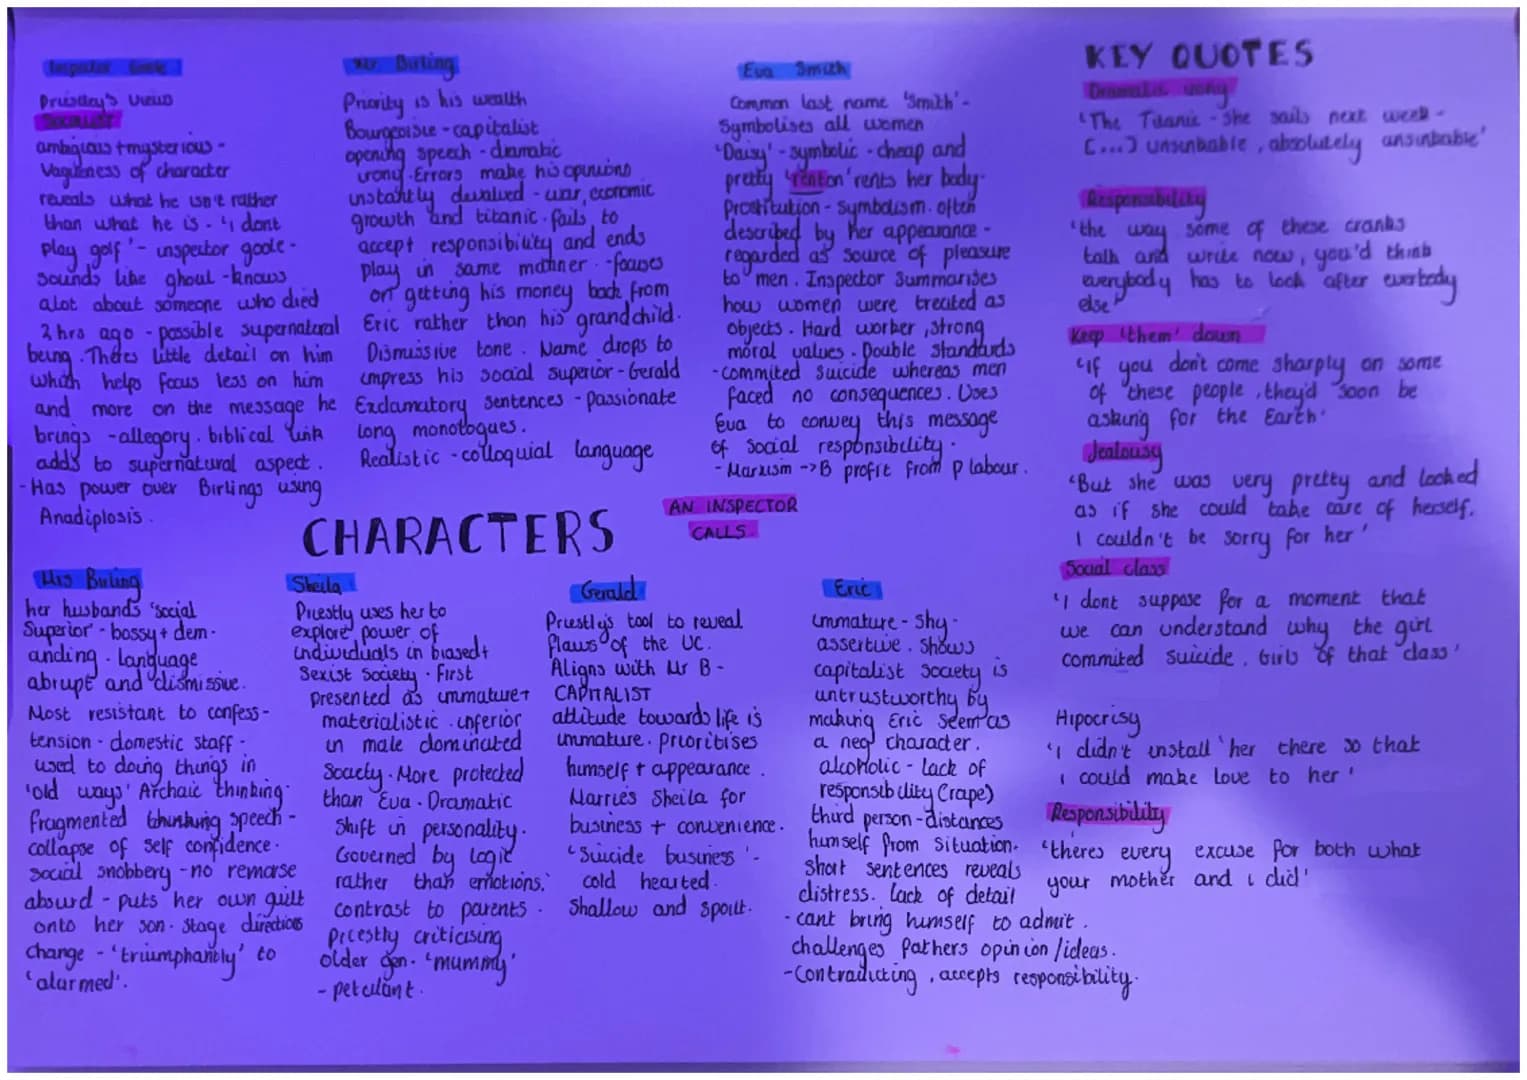 Inspector Goole
Priestley's views
Socialist
ambigious + mysterious -
Vagueness of character
reveals what he isn't rather
than what he is - 'i dont
play golf' - inspector goole -
sounds like ghoul - knows
alot about someone who died
2 hrs ago - possible supernatural
being. Theres little detail on him
which helps focus less on him
and more on the message he
brings - allegory. biblical link
adds to supernatural aspect.
- Has power over Birlings using
Anadiplosis.
Mr. Birling
Priority is his wealth
Bourgeoisie - capitalist
opening speech - dramatic
irony. Errors make his opinions
instantly devalved - war, economic
growth and titanic. fails to
accept responsibility and ends
play in same manner. - focuses
on getting his money back from
Eric rather than his grandchild.
Dismissive tone. Name drops to
impress his social superior - Gerald
Exclamatory sentences - passionate
long monologues.
Realistic - colloquial language
Eva Smith
Common last name 'Smith' -
Symbolises all women
'Daisy' - symbolic - cheap and
pretty 'renton' rents her body -
Prostitution - symbolism. often
described by her appearance -
regarded as source of pleasure
to men. Inspector Summarises
how women were treated as
objects. Hard worker, strong
moral values. Double standards
- commited suicide whereas men
faced no consequences. Uses
Eva to convey this message
of social responsibility.
- Marxism -> B profit from P labour.
AN INSPECTOR
CALLS.
CHARACTERS
Mrs Birling
her husbands 'social
Superior' - bossy + dem-
anding. Language
abrupt and dismissive.
Most resistant to confess-
tension - domestic staff -
used to doing things in
'old ways' Archaic thinking.
fragmented thinking speech -
collapse of self confidence.
social snobbery - no remorse
absurd - puts her own guilt
onto her son. Stage directions
change - 'triumphantly' to
'alarmed'.
Sheila
Priestly uses her to
explore power of
individuals in biased +
Sexist Society. First
presented as immature +
materialistic. inferior
in male dominated
Society. More protected
than Eva. Dramatic
Shift in personality.
Governed by logic
rather than emotions.
contrast to parents.
Priestly criticising
older gen. 'mummy'
- petulant.
Gerald
Priestly's tool to reveal
flaws of the UC.
Aligns with Mr B -
CAPITALIST
attitude towards life is
immature. Prioritises
himself + appearance.
Marries Sheila for
business + convenience.
'Suicide business' -
cold hearted.
Shallow and spoilt.
Eric
immature - shy -
assertive. Shows
capitalist society is
untrustworthy by
making Eric seem as
a neg character.
alcoholic - lack of
responsibility (rape)
third person - distances
himself from situation.
Short sentences reveals
distress. lack of detail
- cant bring himself to admit.
challenges fathers opinion/ideas.
- Contradicting, accepts responsibility.
KEY QUOTES
Dramatic irony
'The Titanic - she sails next week -
[...] unsinkable, absolutely unsinkable'
Responsibility
'the way some of these cranks
talk and write now, you'd think
everybody has to look after everbody
else'
Keep 'them' down
'if you don't come sharply on some
of these people, they'd soon be
asking for the Earth'
Jealousy
'But she was very pretty and looked
as if she could take care of herself.
I couldn't be sorry for her'
Social class
'I dont suppose for a moment that
we can understand why the girl
commited suicide. Girls of that class'
Hipocrisy
'i didn't install her there so that
i could make love to her'
Responsibility
'theres every excuse for both what
your mother and i did'